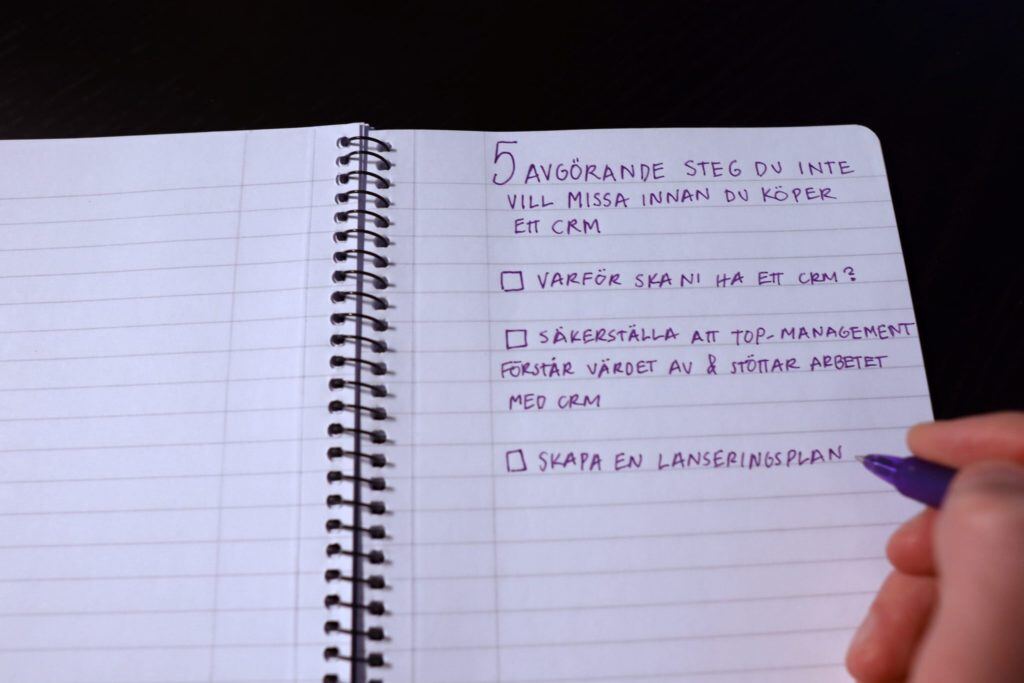 5 AVGÖRANDE STEG DU INTE
VILL MISSA INNAN DU KÖPER
ETT CRM
VARFÖR SKA NI HA ETT CRM?
SÄKERSTÄLLA ATT TOP-MANAGEMENT
FÖRSTÅR VÄRDET AV & STÖTTAR ARBETET
MED CRM
SKAPA EN LANSERINGSPLAN